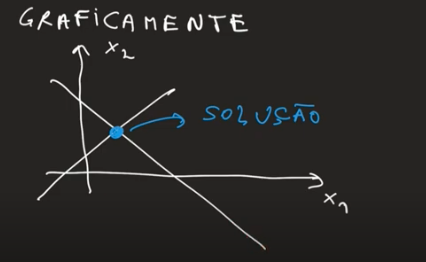 GRAFICAMENTE
x₂
SOLUÇÃO
x₁